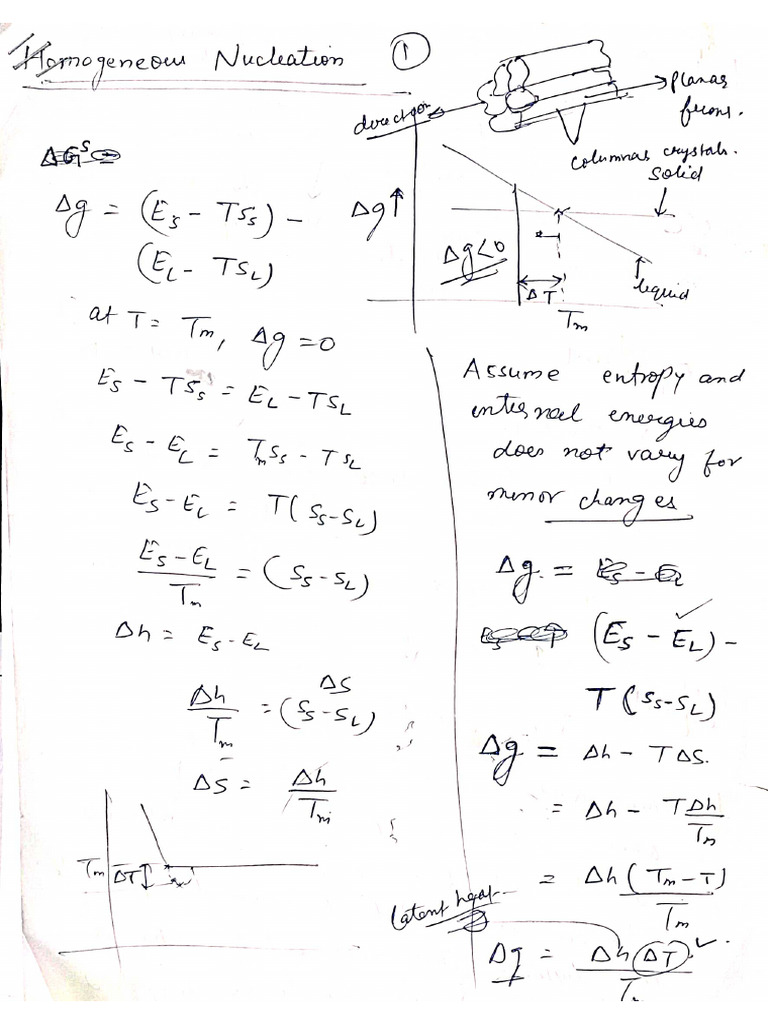 Homogeneous Nucleation ①
direction
planar
front.
columnar crystals.
solid
Δg↑
Δg<0
ΔT
Tm
liquid
Δg = (Es - TSs) -
(EL - TSL)
at T = Tm, Δg = 0
Es - TSs = EL - TSL
Es - EL = TmSs - TSL
Es - EL = T(Ss - SL)
Es - EL / Tm = (Ss - SL)
Δh = Es - EL
Δh / Tm = (Ss - SL) ΔS
ΔS = Δh / Tm
Tm ΔT
Assume entropy and
internal energies
does not vary for
minor changes
Δg =
(Es - EL) -
T(Ss - SL)
Δg = Δh - TΔS.
= Δh - TΔh / Tm
= Δh (Tm - T) / Tm
Latent heat
Δg = Δh ΔT / Tm